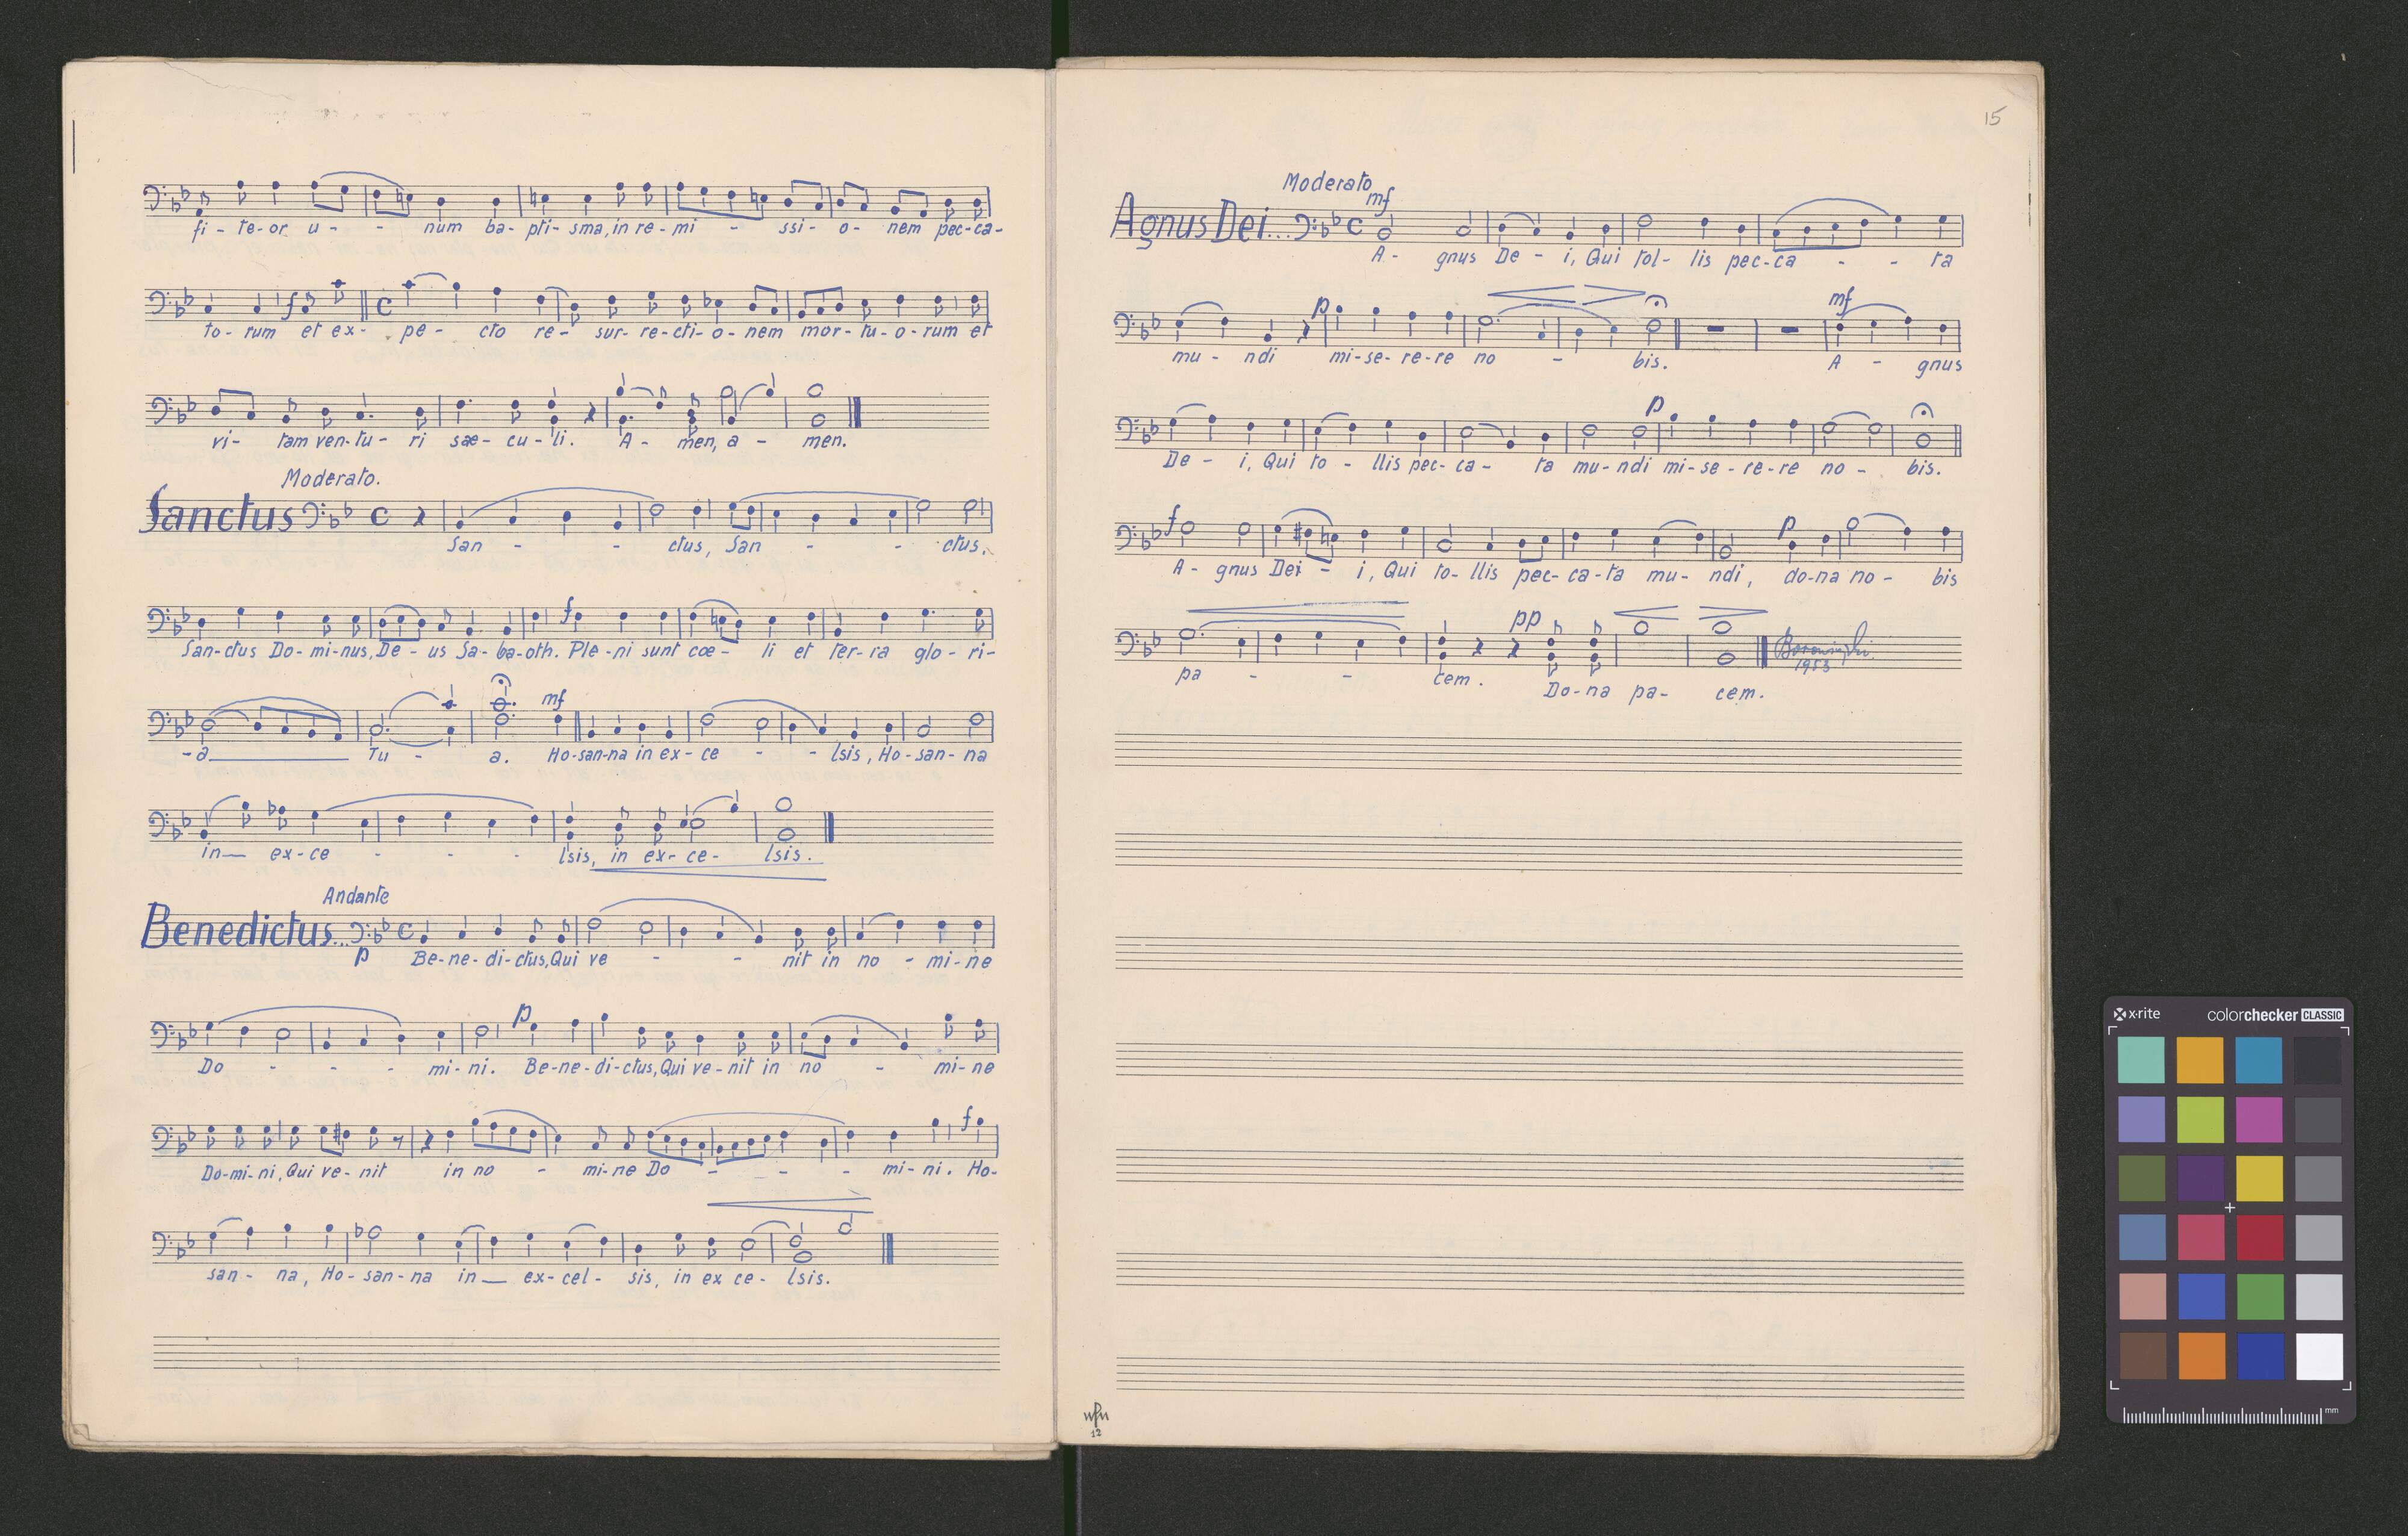 fi - te - or u - - num ba - pti - sma, in re - mi - ssi - o - nem pec - ca -
f
to - rum et ex - pe - cto re - sur - re - cti - o - nem mor - tu - o - rum et
vi - tam ven - tu - ri sæ - cu - li. A - men, a - men.
Moderato.
Sanctus
San - - ctus, San - - ctus.
f
San - ctus Do - mi - nus, De - us Sa - ba - oth. Ple - ni sunt cœ - li et ter - ra glo - ri -
mf
- a Tu - a. Ho - san - na in ex - ce - - lsis, Ho - san - na
in ex - ce - - - lsis, in ex - ce - lsis.
Andante
Benedictus...
p Be - ne - di - ctus, Qui ve - - nit in no - mi - ne
p
Do - - - mi - ni. Be - ne - di - ctus, Qui ve - nit in no - mi - ne
f
Do - mi - ni, Qui ve - nit in no - mi - ne Do - - - mi - ni. Ho -
san - na, Ho - san - na in ex - cel - sis, in ex ce - lsis.
15
Moderato
mf
Agnus Dei...
A - gnus De - i, Qui tol - lis pec - ca - - ta
p mf
mu - ndi mi - se - re - re no - bis. A - gnus
p
De - i, Qui to - llis pec - ca - ta mu - ndi mi - se - re - re no - bis.
f p
A - gnus Dei - i, Qui to - llis pec - ca - ta mu - ndi, do - na no - bis
pp
pa - - cem. Do - na pa - cem.
1953
12
x·rite colorchecker CLASSIC
mm